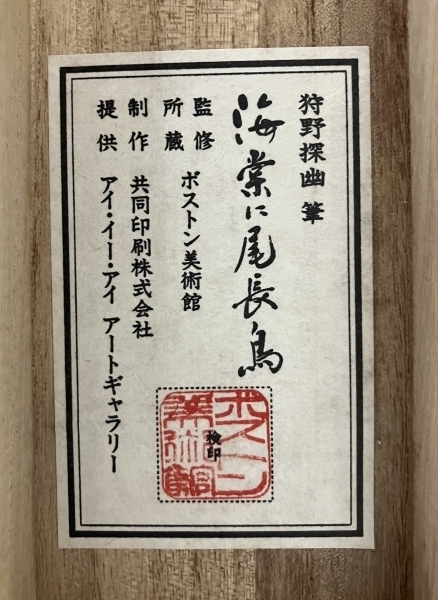 狩野探幽 筆
海棠に尾長鳥
監修
所蔵 ボストン美術館
制作 共同印刷株式会社
提供 アイ・イー・アイ アートギャラリー
検印
ボストン美術館